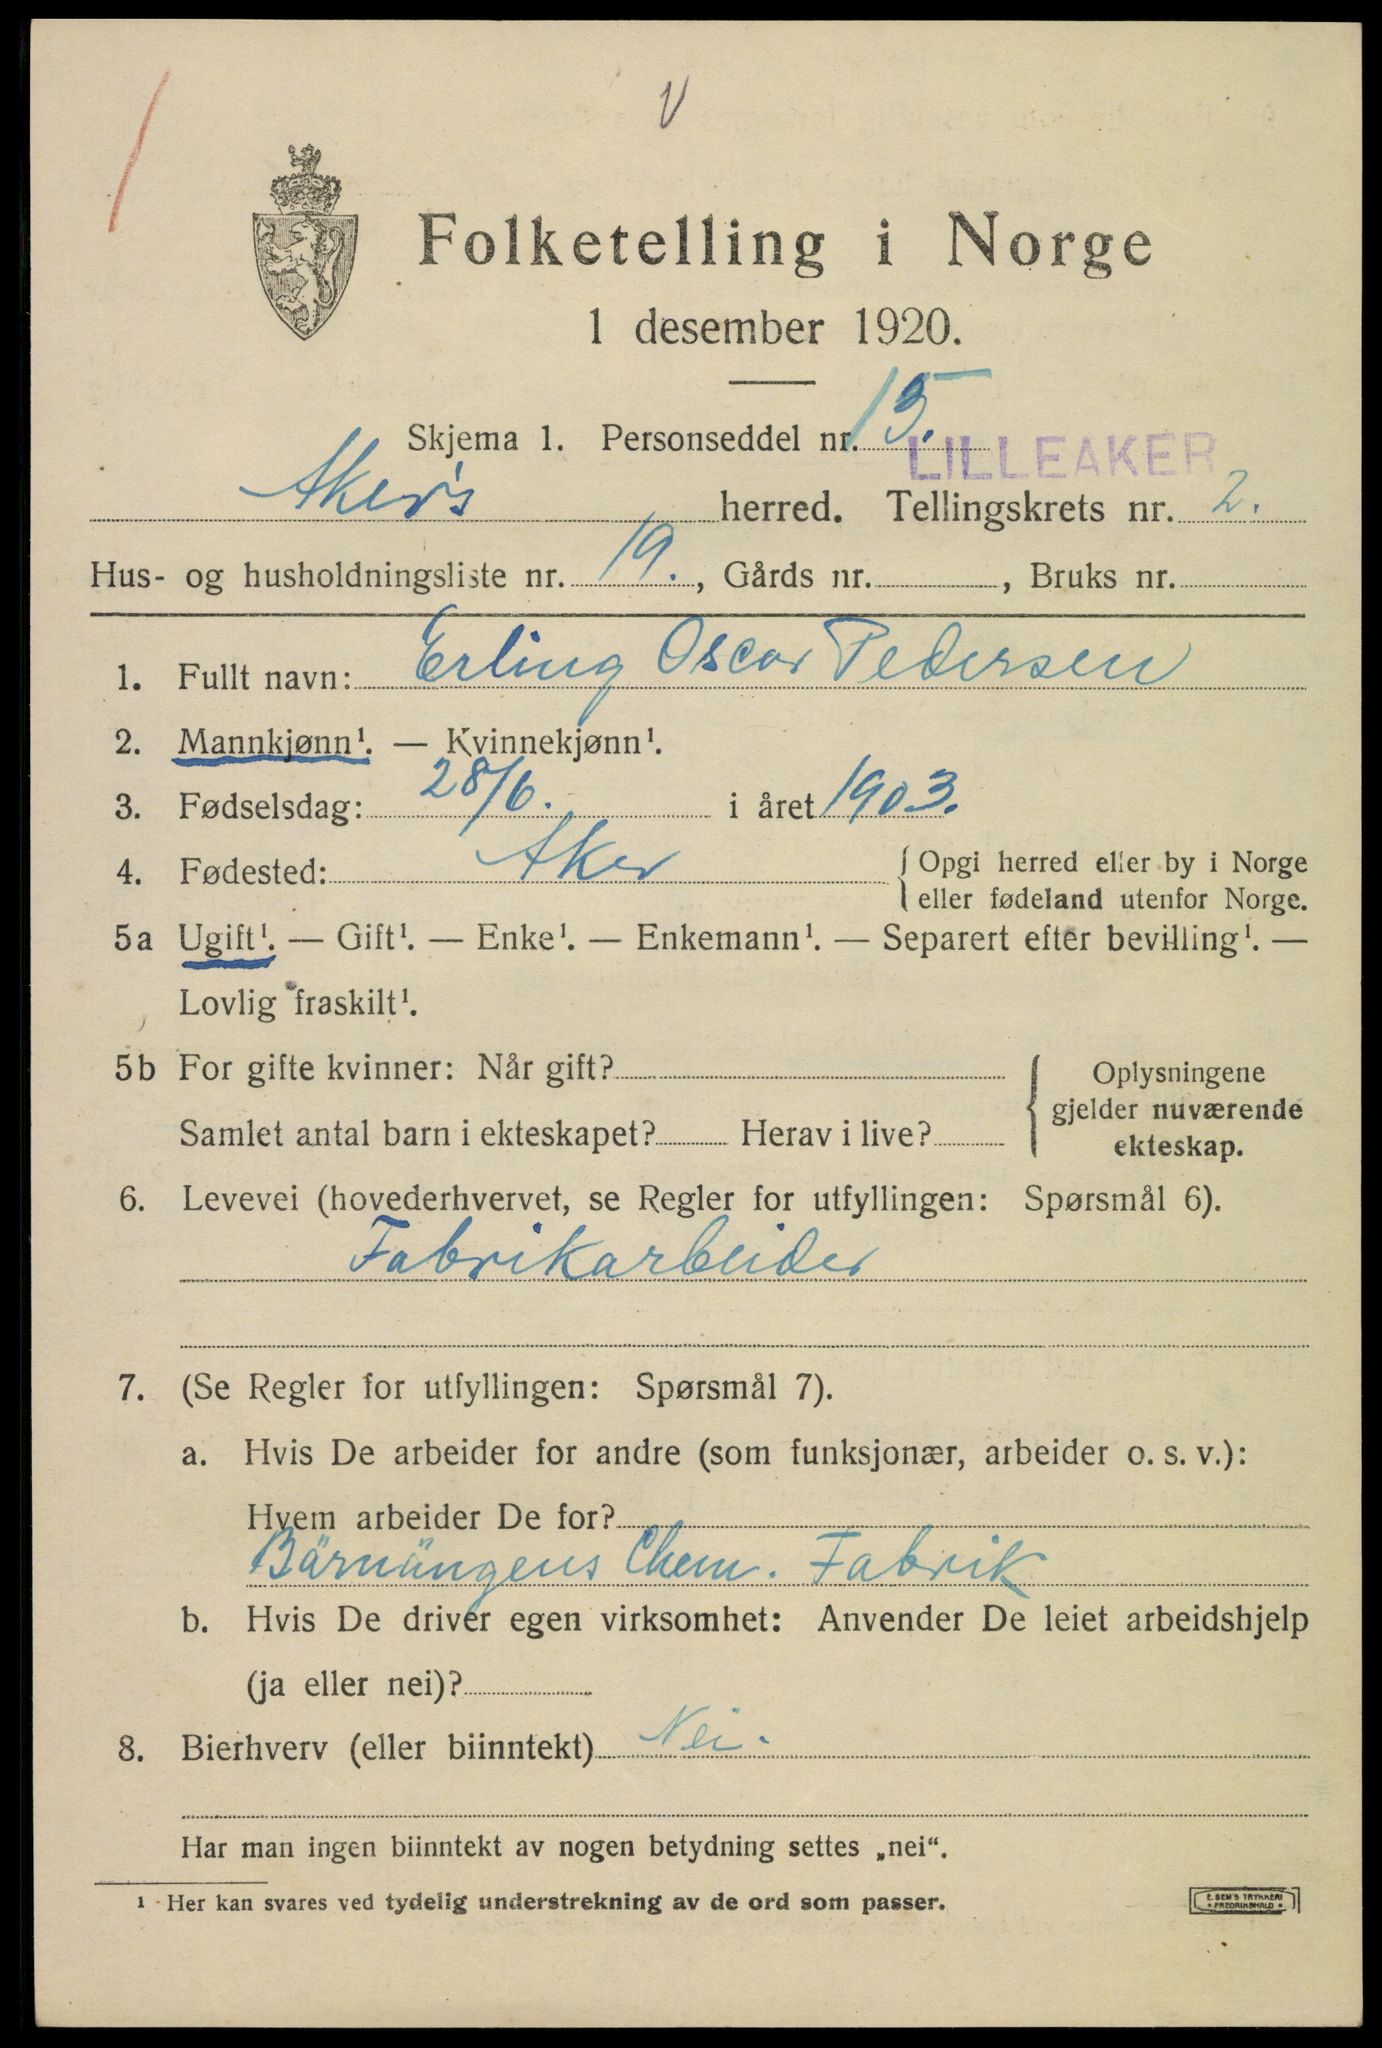 V
Folketelling i Norge
1 desember 1920.
Skjema 1. Personseddel nr. 15.
LILLEAKER
Aker's herred. Tellingskrets nr. 2.
Hus- og husholdningsliste nr. 19., Gårds nr. , Bruks nr.
1. Fullt navn: Erling Oscar Pedersen
2. Mannkjønn¹. — Kvinnekjønn¹.
3. Fødselsdag: 28/6. i året 1903.
4. Fødested: Aker { Opgi herred eller by i Norge
eller fødeland utenfor Norge.
5a Ugift¹. — Gift¹. — Enke¹. — Enkemann¹. — Separert efter bevilling¹. —
Lovlig fraskilt¹.
5b For gifte kvinner: Når gift?
Samlet antal barn i ekteskapet? Herav i live?
{ Oplysningene
gjelder nuværende
ekteskap.
6. Levevei (hovederhvervet, se Regler for utfyllingen: Spørsmål 6).
Fabrikarbeider
7. (Se Regler for utfyllingen: Spørsmål 7).
a. Hvis De arbeider for andre (som funksjonær, arbeider o. s. v.):
Hvem arbeider De for?
Bärnängens Chem. Fabrik
b. Hvis De driver egen virksomhet: Anvender De leiet arbeidshjelp
(ja eller nei)?
8. Bierhverv (eller biinntekt) Nei.
Har man ingen biinntekt av nogen betydning settes „nei“.
¹ Her kan svares ved tydelig understrekning av de ord som passer.
E. SEM'S TRYKKERI
* FREDRIKSHALD *